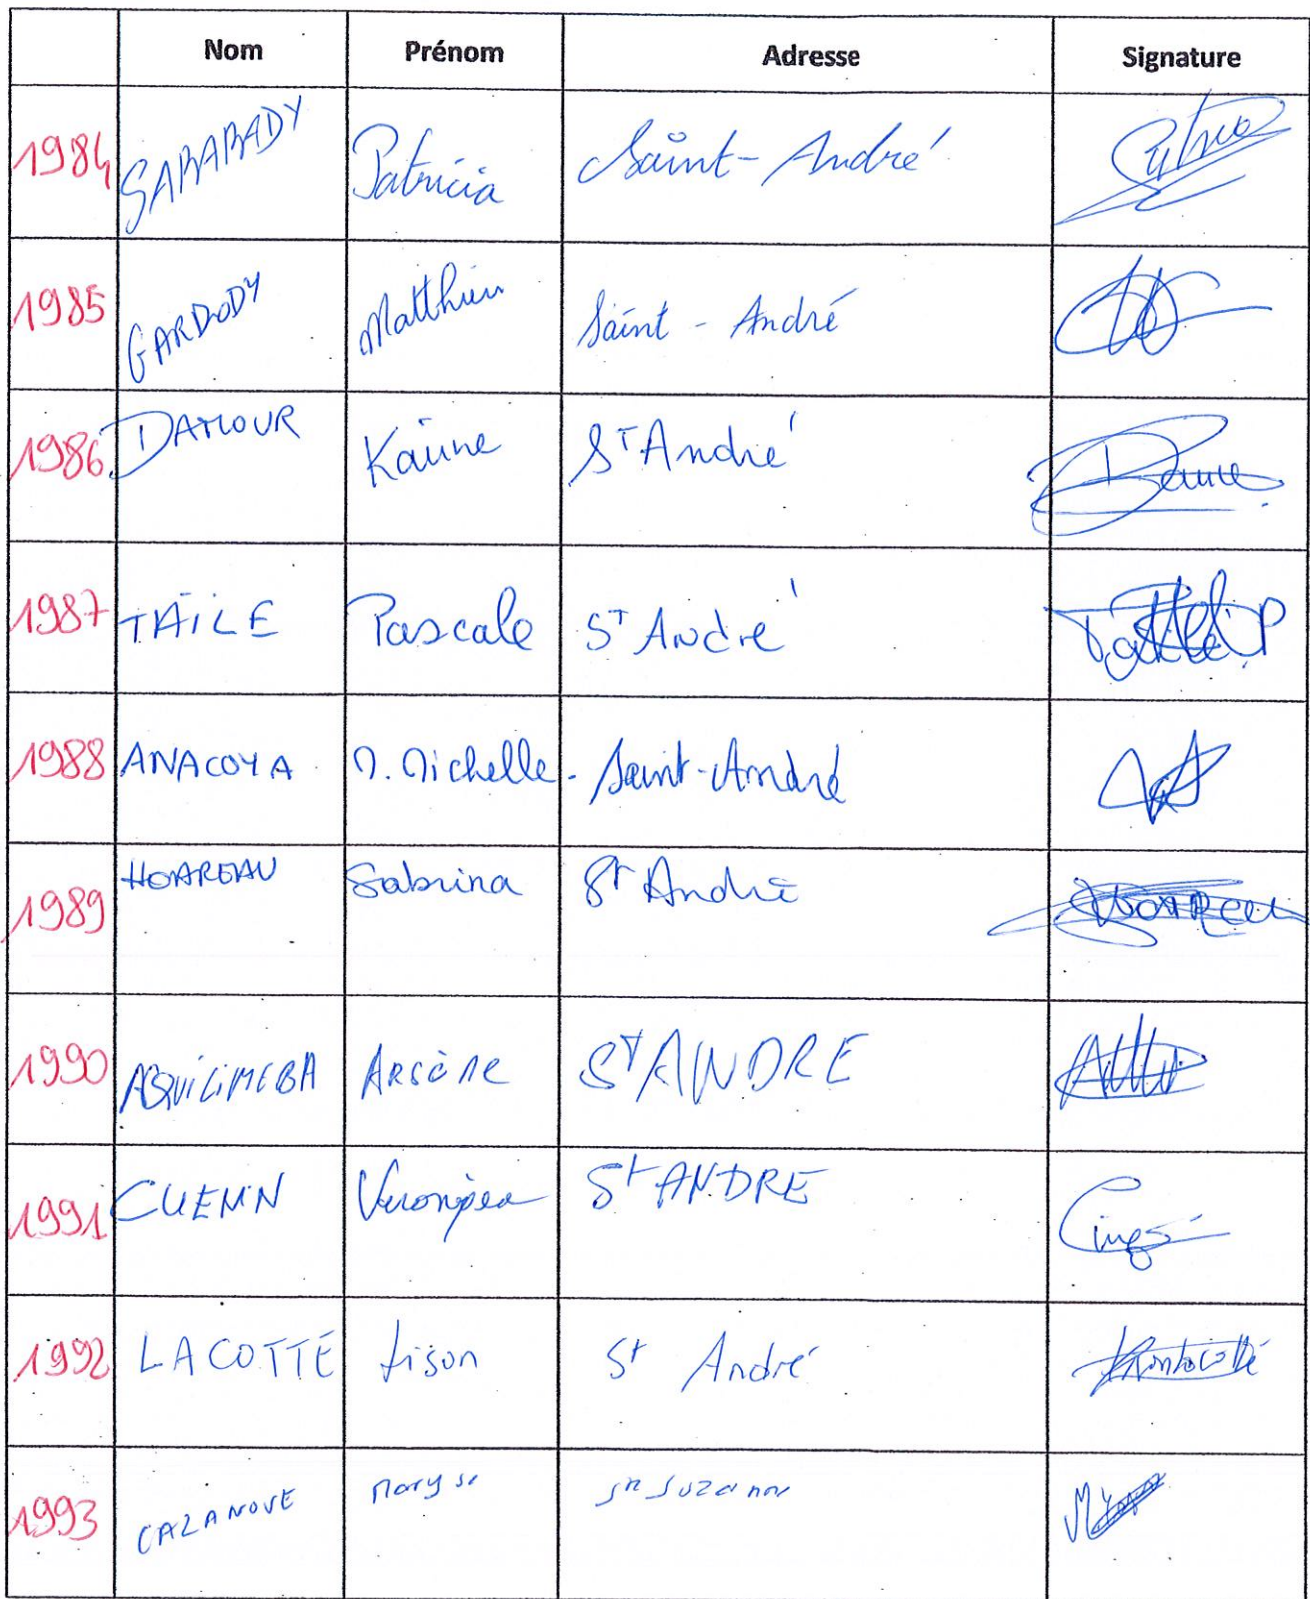 Nom Prénom Adresse Signature
1984 SABABADY Patricia Saint-André
1985 GARDODY Matthieu Saint-André
1986 DAMOUR Karine St André
1987 TAILE Pascale St André
1988 ANACOYA M. Michelle Saint-André
1989 HOAREAU Sabrina St André
1990 Arsène St ANDRE
1991 St ANDRE
1992 LACOTTE St André
1993 CAZANOVE Maryse Ste Suzanne